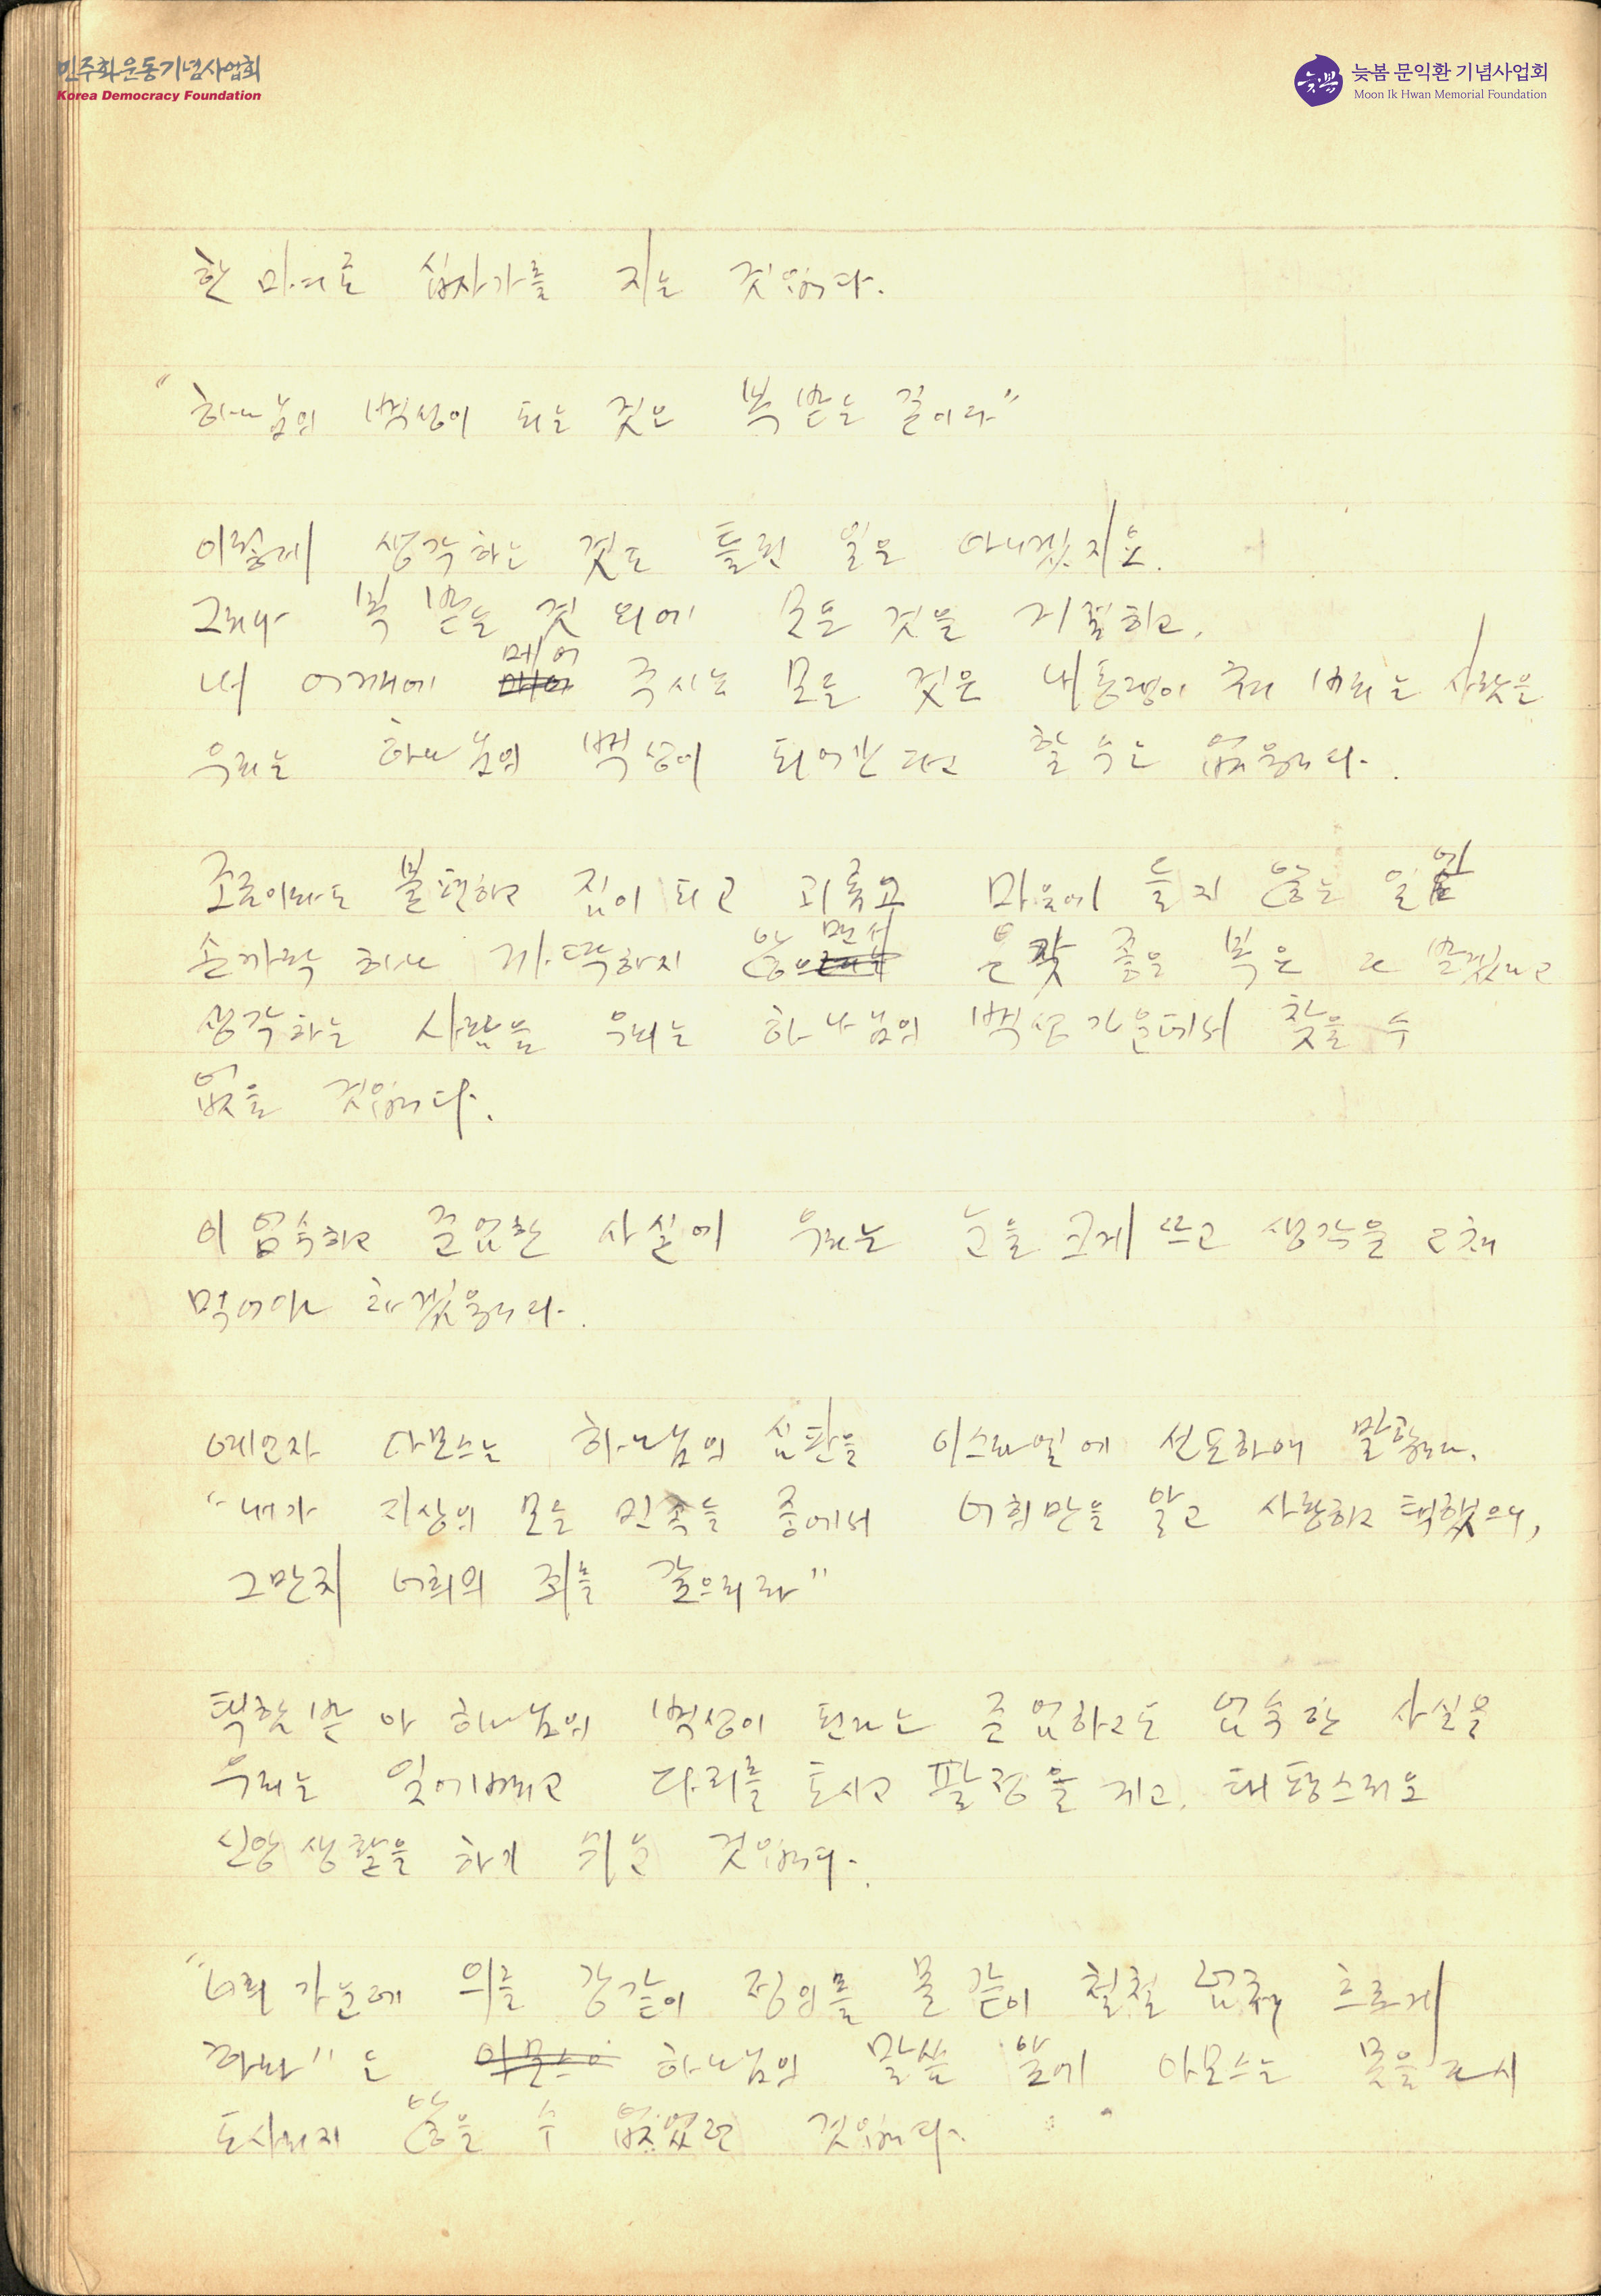 민주화운동기념사업회
Korea Democracy Foundation
늦봄
늦봄 문익환 기념사업회
Moon Ik Hwan Memorial Foundation
한 십자가를 지는 것입니다.
"하나님의 백성이 되는 것은 복 받는 길이다"
이렇게 생각하는 것도 틀린 일은 아니겠지요.
그러나 복 받는 것 외에 모든 것을 거절하고,
메어
내 어깨에 주시는 모든 것은 버리는 사람을
우리는 하나님의 백성이 되어간다고 할 수는 없읍니다.
조금이라도 불편하고 짐이 되고 괴롭고 마음에 들지 않는 일엔
면서
손가락 하나 까딱하지 않으 온갖 좋은 복은 다 받겠다고
생각하는 사람을 우리는 하나님의 백성 가운데서 찾을 수
없을 것입니다.
이 엄숙하고 준엄한 사실에 우리는 눈을 크게 뜨고 생각을 고쳐
먹어야 하겠읍니다.
예언자 아모스는 하나님의 심판을 이스라엘에 선포하여 말합니다.
"내가 지상의 모든 민족들 중에서 너희만을 알고 사랑하고 택했으니,
그만치 너희의 죄를 갚으리라"
택함 받아 하나님의 백성이 된다는 준엄하고도 엄숙한 사실을
우리는 잊어버리고 다리를 도사고 팔장을 끼고, 태평스러운
신앙생활을 하기 쉬운 것입니다.
"너희 가운데 의를 강같이 정의를 물같이 철철 넘쳐 흐르게
하라"는 하나님의 말씀 앞에 아모스는 몸을 다시
도사리지 않을 수 없었던 것입니다.